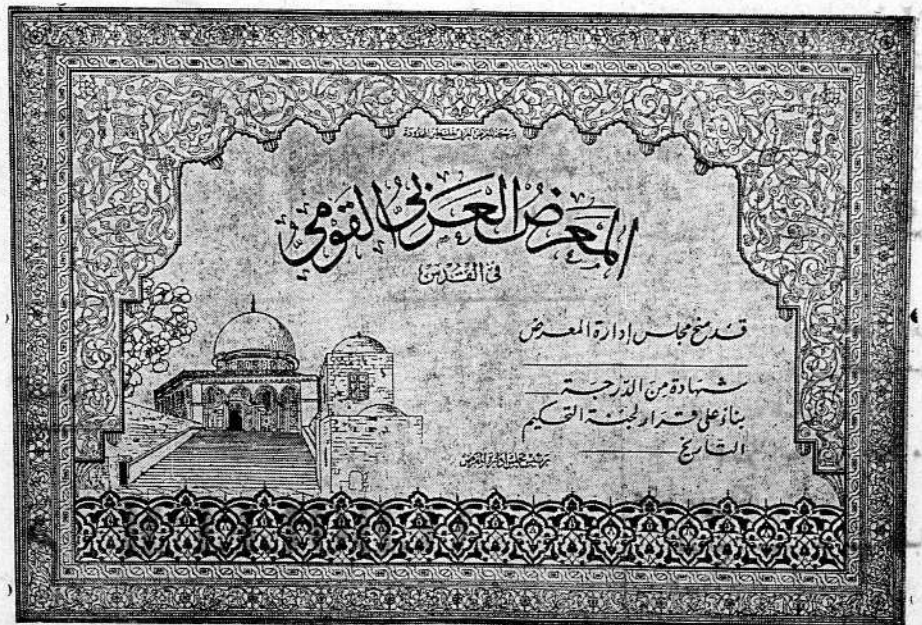 المَعرَضُ العَرَبيُّ القَومِيُّ
في القُدسِ
قد منح مجلس إدارة المعرض
شهادة مِنَ الدّرجَة
بناءً على قرار لجنة التحكيم
التاريخ
رئيس مجلس إدارة المعرض